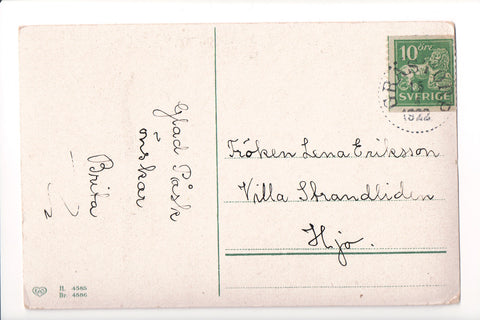 Glad Påsk
önskar
Brita
10 öre
SVERIGE
1922
Fröken Lena Eriksson
Villa Strandliden
Hjo.
H. 4585
Br. 4586